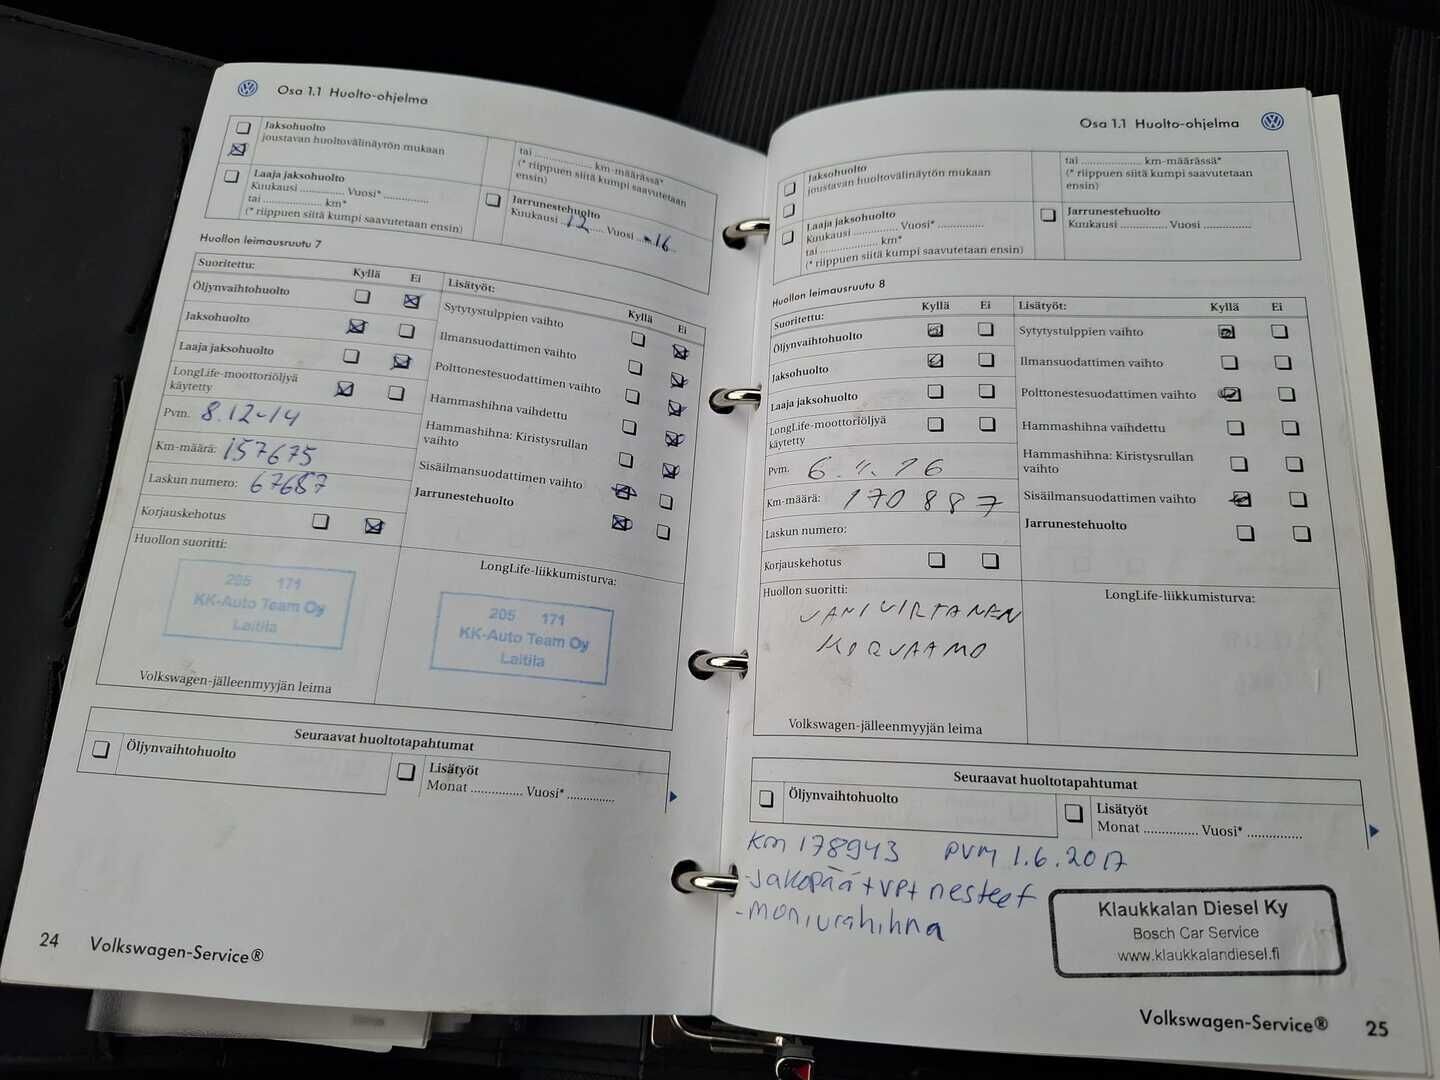 Osa 1.1 Huolto-ohjelma
Jaksohuolto
joustavan huoltovälinäytön mukaan
tai .................... km-määrässä*
(* riippuen siitä kumpi saavutetaan
ensin)
Laaja jaksohuolto
Kuukausi .............. Vuosi* ..............
tai .................... km*
(* riippuen siitä kumpi saavutetaan ensin)
Jarrunestehuolto
Kuukausi 12 Vuosi -16
Huollon leimausruutu 7
Suoritettu: Kyllä Ei
Öljynvaihtohuolto
Jaksohuolto
Laaja jaksohuolto
LongLife-moottoriöljyä
käytetty
Pvm. 8.12-14
Km-määrä: 157675
Laskun numero: 67687
Korjauskehotus
Lisätyöt: Kyllä Ei
Sytytystulppien vaihto
Ilmansuodattimen vaihto
Polttonestesuodattimen vaihto
Hammashihna vaihdettu
Hammashihna: Kiristysrullan
vaihto
Sisäilmansuodattimen vaihto
Jarrunestehuolto
Huollon suoritti:
205 171
KK-Auto Team Oy
Laitila
Volkswagen-jälleenmyyjän leima
LongLife-liikkumisturva:
205 171
KK-Auto Team Oy
Laitila
Seuraavat huoltotapahtumat
Öljynvaihtohuolto
Lisätyöt
Monat .............. Vuosi* ..............
24 Volkswagen-Service®
Osa 1.1 Huolto-ohjelma
Jaksohuolto
joustavan huoltovälinäytön mukaan
tai .................... km-määrässä*
(* riippuen siitä kumpi saavutetaan
ensin)
Laaja jaksohuolto
Kuukausi .............. Vuosi* ..............
tai .................... km*
(* riippuen siitä kumpi saavutetaan ensin)
Jarrunestehuolto
Kuukausi .............. Vuosi ..............
Huollon leimausruutu 8
Suoritettu: Kyllä Ei
Öljynvaihtohuolto
Jaksohuolto
Laaja jaksohuolto
LongLife-moottoriöljyä
käytetty
Pvm. 6.11.16
Km-määrä: 170887
Laskun numero:
Korjauskehotus
Lisätyöt: Kyllä Ei
Sytytystulppien vaihto
Ilmansuodattimen vaihto
Polttonestesuodattimen vaihto
Hammashihna vaihdettu
Hammashihna: Kiristysrullan
vaihto
Sisäilmansuodattimen vaihto
Jarrunestehuolto
Huollon suoritti:
JANI VIRTANEN
KORJAAMO
Volkswagen-jälleenmyyjän leima
LongLife-liikkumisturva:
Seuraavat huoltotapahtumat
Öljynvaihtohuolto
Lisätyöt
Monat .............. Vuosi* ..............
Km 178943 PVM 1.6.2017
-Jakopää+VP+nesteet
-moniurahihna
Klaukkalan Diesel Ky
Bosch Car Service
www.klaukkalandiesel.fi
Volkswagen-Service® 25